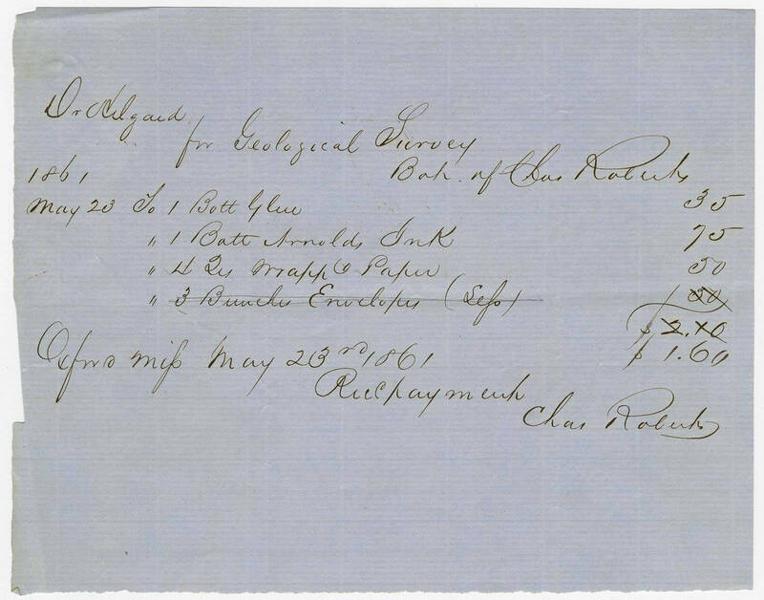 Dr Hilgard
for Geological Survey
1861 Bot. of Chas Roberts
May 23 To 1 Bott Glue 35
" 1 Bott Arnolds Ink 75
" 4 Qs Wrapp g Paper 50
" 3 Bunches Envelopes (Less) 50
$ 2.10
Oxford Miss May 23rd 1861 $ 1.60
Recpayment
Chas Roberts